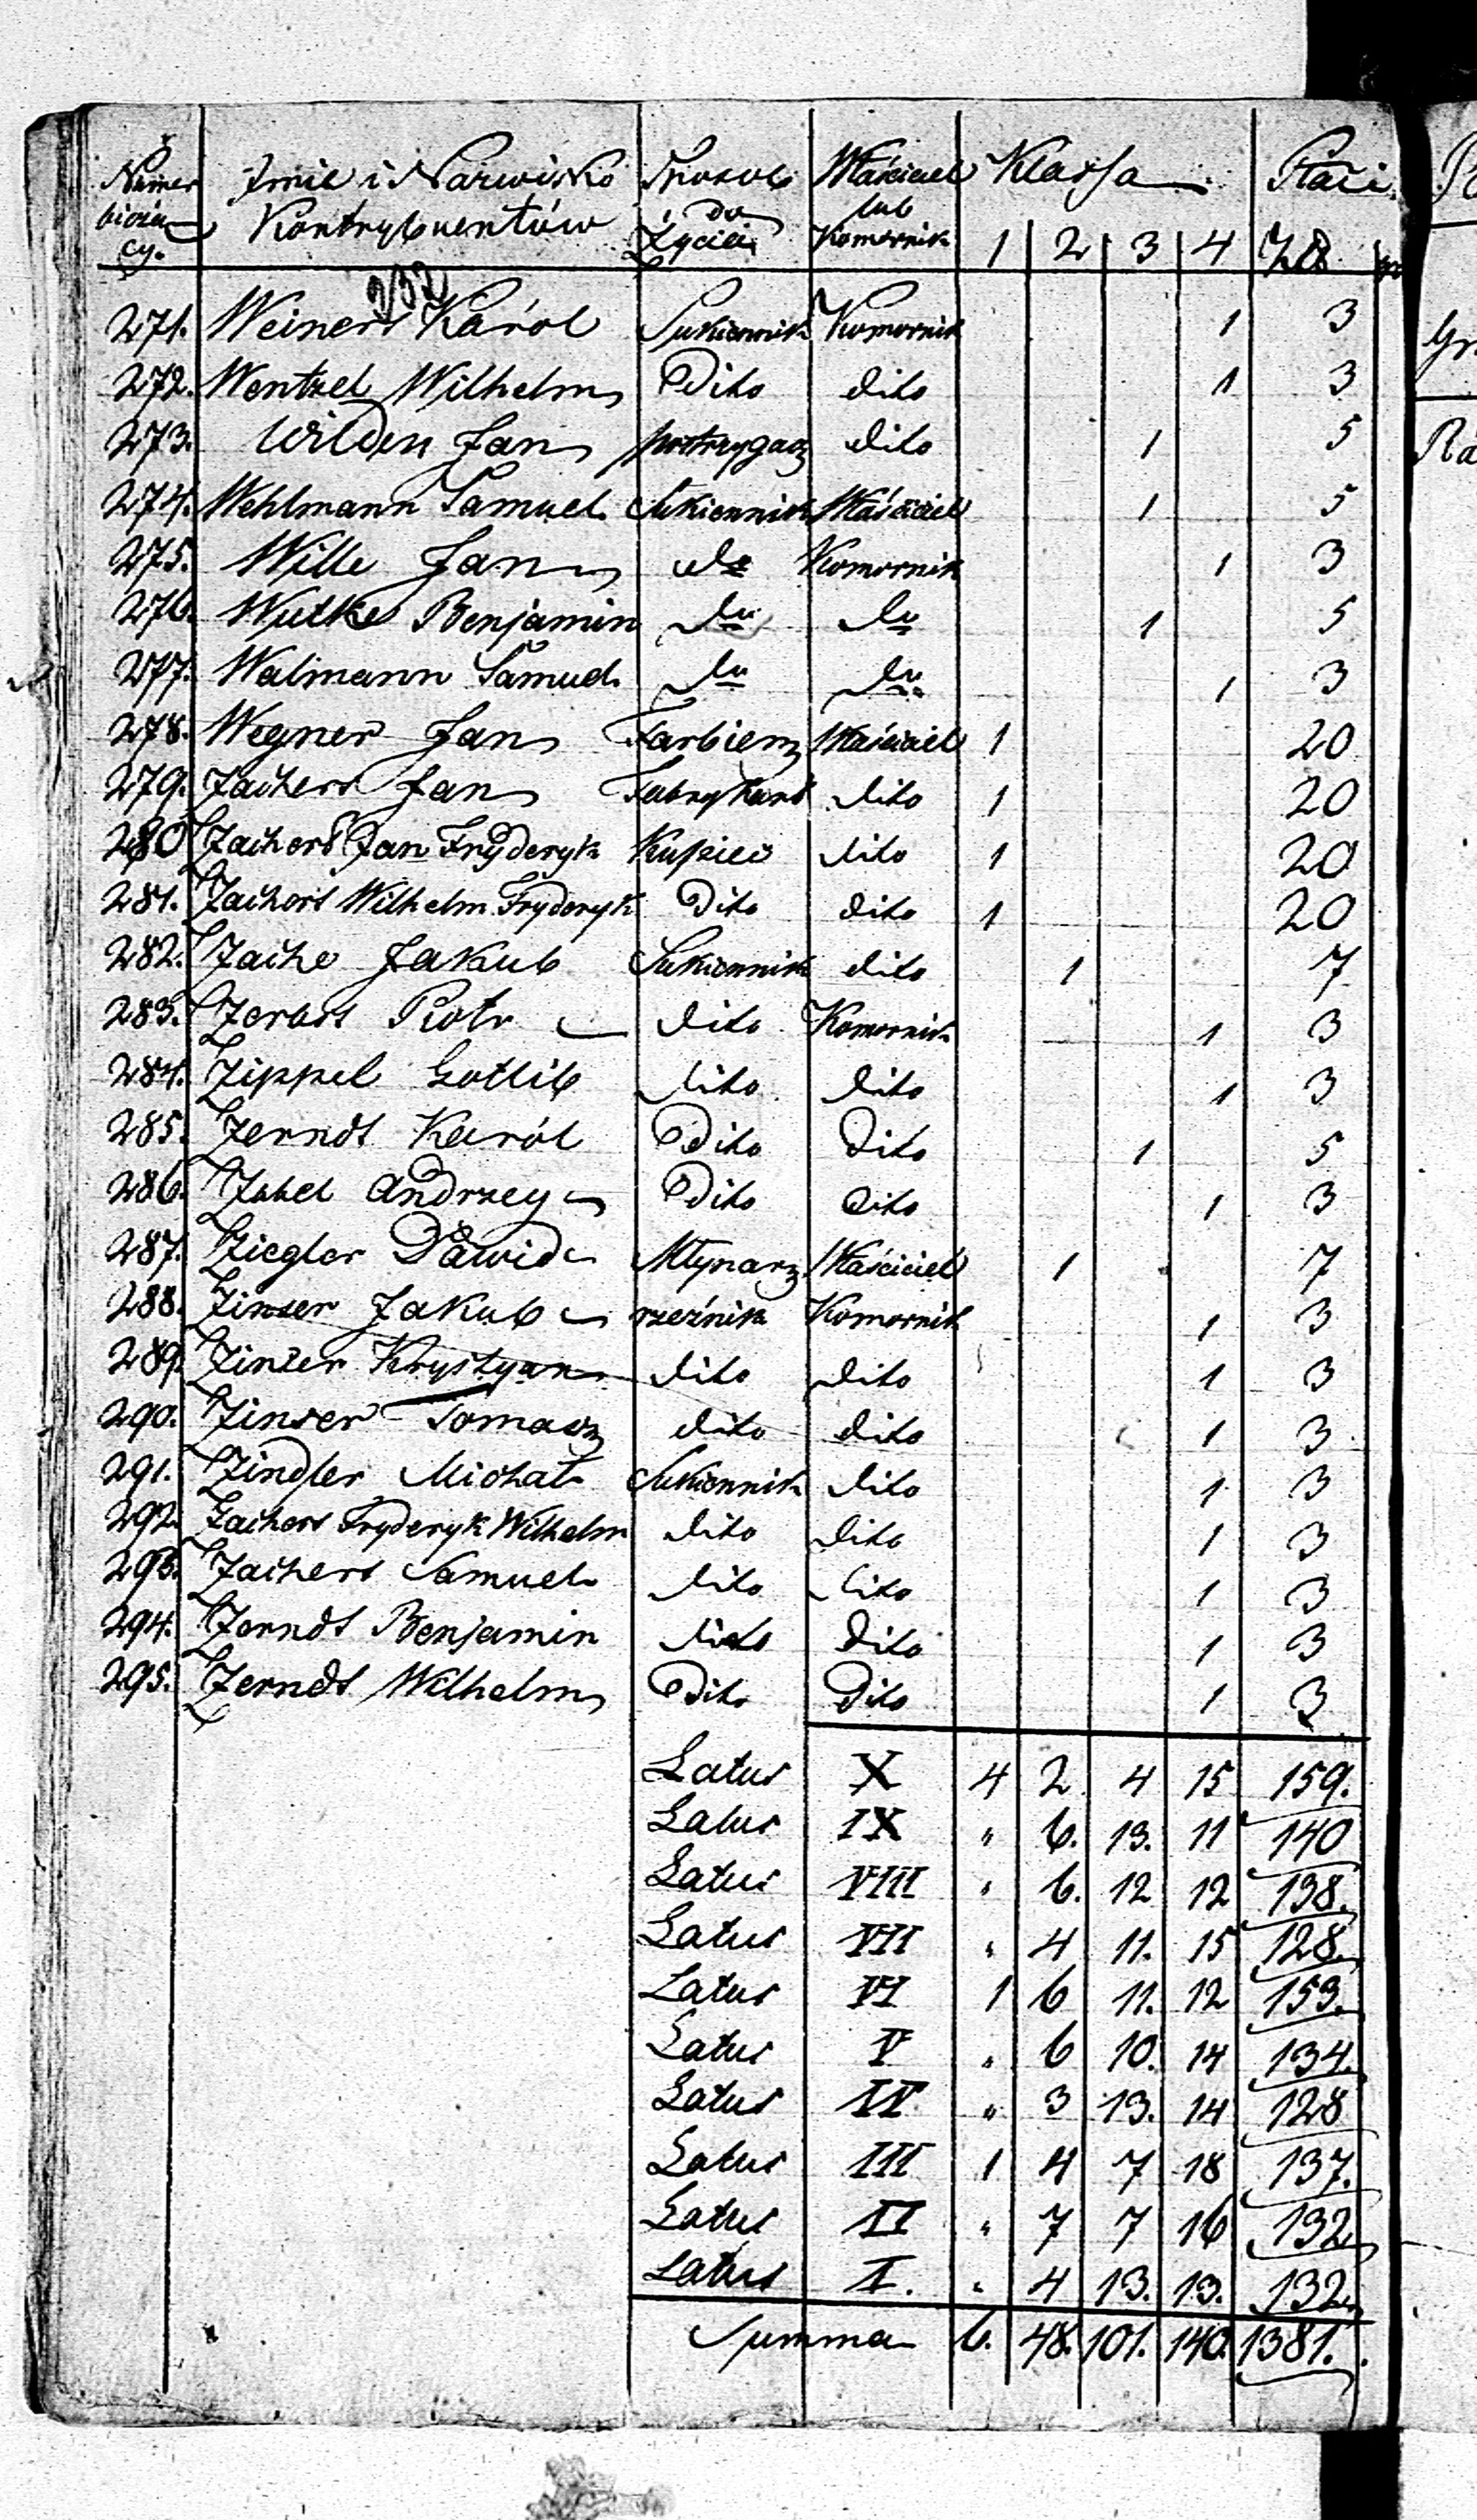 Numer Imie i Nazwisko Sposob Właściciel Klassa Płaci
bieżą- Kontrybuentów do lub
cy. Życia Komornik 1 2 3 4 Zł gr
232
271. Weinert Karól Sukiennik Komornik 1 3
272. Wentzel Wilhelm Dito dito 1 3
273. Wilden Jan postrzygacz dito 1 5
274. Wehlmann Samuel Sukiennik Właściciel 1 5
275. Wille Jan do Komornik 1 3
276. Wutke Benjamin do do 1 5
277. Walmann Samuel do do 1 3
278. Wegner Jan Farbierz Właściciel 1 20
279. Zachert Jan Fabrykant dito 1 20
280 Zachert Jan Fryderyk Kupiec dito 1 20
281. Zachert Wilhelm Fryderyk Dito dito 1 20
282. Zache Jakub Sukiennik dito 1 7
283. Zerbst Piotr dito Komornik 1 3
284. Zippel Gotlib dito dito 1 3
285. Zerndt Karól Dito Dito 1 5
286. Zabel Andrzey Dito Dito 1 3
287. Ziegler Dawid Młynarz Właściciel 1 7
288. Zinser Jakub rzeźnik Komornik 1 3
289. Zinser Krystyan dito dito 1 3
290. Zinser Tomasz dito dito 1 3
291. Zindler Michał Sukiennik dito 1 3
292. Zachert Fryderyk Wilhelm dito dito 1 3
293. Zachert Samuel dito dito 1 3
294. Zerndt Benjamin dito Dito 1 3
295. Zerndt Wilhelm Dito Dito 1 3
Latus X 4 2 4 15 159.
Latus IX " 6. 13. 11 140
Latus VIII " 6. 12 12 138.
Latus VII " 4 11. 15 128.
Latus VI 1 6 11. 12 153.
Latus V " 6 10. 14 134.
Latus IV " 3 13. 14 128
Latus III 1 4 7 18 137.
Latus II " 7 7 16 132
Latus I. " 4 13. 13. 132.
Summa 6. 48. 101. 140. 1381.